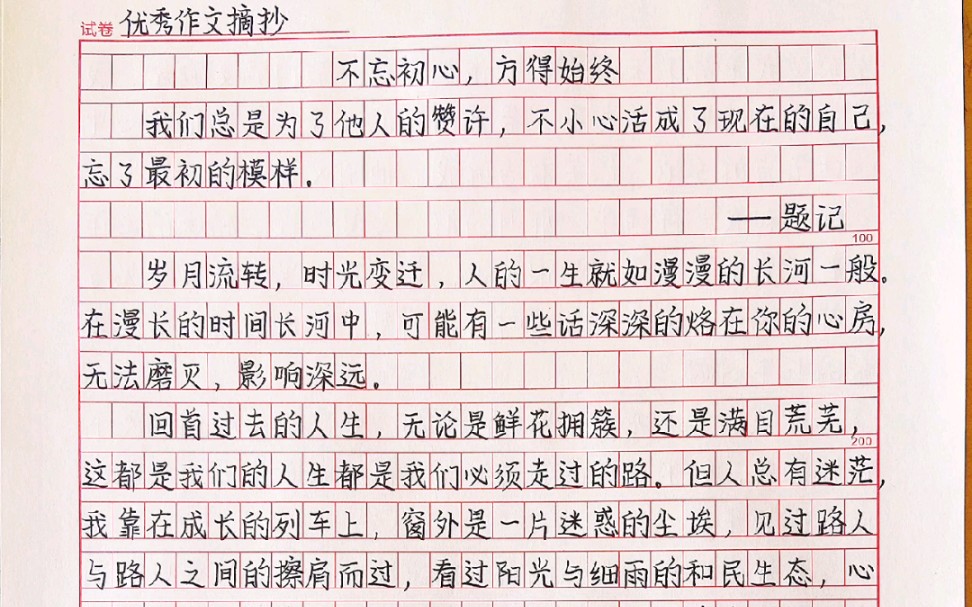 试卷 优秀作文摘抄
不忘初心，方得始终
我们总是为了他人的赞许，不小心活成了现在的自己，
忘了最初的模样．
——题记
100
岁月流转，时光变迁，人的一生就如漫漫的长河一般。
在漫长的时间长河中，可能有一些话深深的烙在你的心房，
无法磨灭，影响深远。
回首过去的人生，无论是鲜花拥簇，还是满目荒芜，
200
这都是我们的人生都是我们必须走过的路。但人总有迷茫，
我靠在成长的列车上，窗外是一片迷惑的尘埃，见过路人
与路人之间的擦肩而过，看过阳光与细雨的和民生态，心